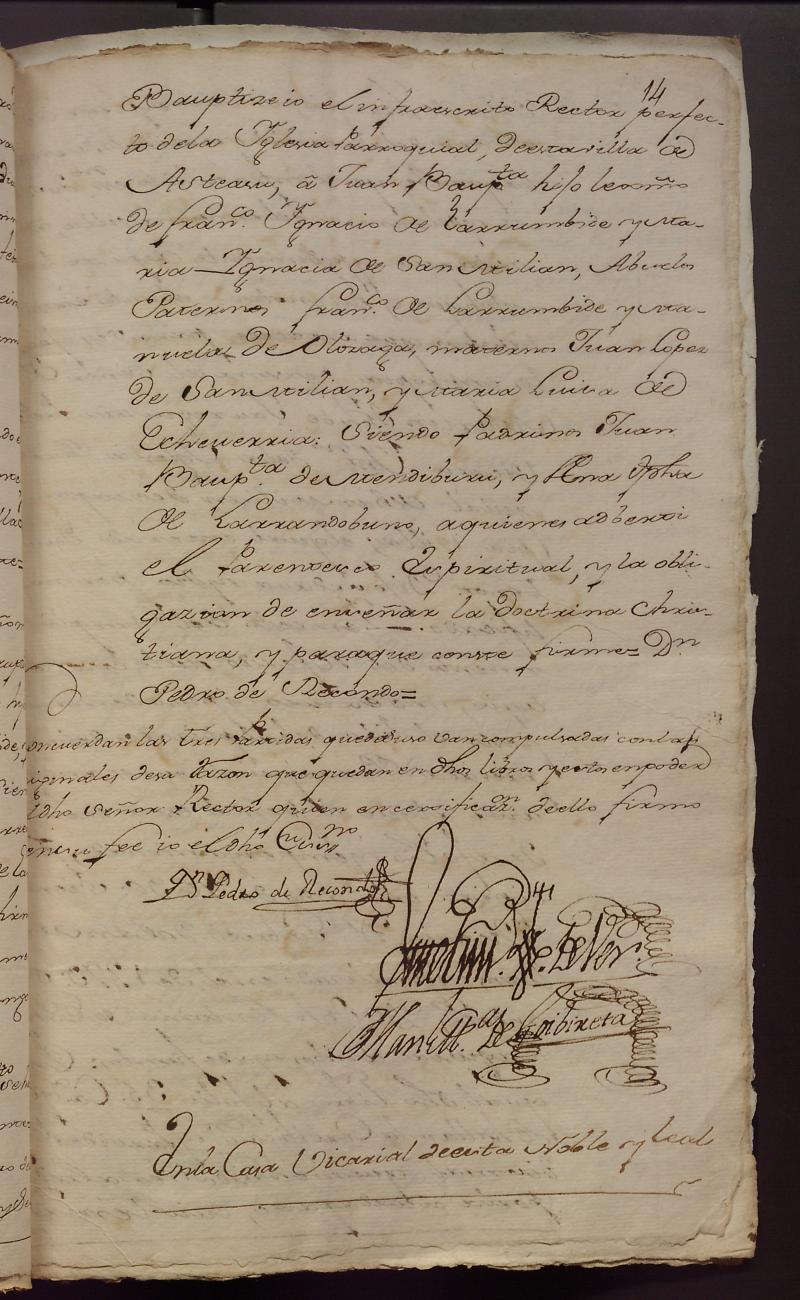 14
Bauptize io el infraescrito Rector perfec-
to dela Iglesia Parroquial, deesta villa de
Asteasu, â Juan Baup.ta hijo lexmo
de fran.co Ignacio de Larrumbide y Ma-
ria Ignacia de San Milian, Abuelos
Paternos fran.co de Larrumbide y Ma-
nuela De Olozaga, maternos Juan Lopez
de San Milian, y Maria Luisa de
Echeverria: Siendo Padrinos Juan
Baup.ta de Mendiburu, y Ana Jpha
de Larrandobuno, aquienes adberti
el Parentesco Espiritual, y la obli-
gazion de enseñar la Doctrina Chris-
tiana, y paraque conste firme= Dn
Pedro de Recondo=
oncuerdan las tres Partidas quede suso van compulsadas con las
iginales desa Razon que quedan en dhos libros y estos en poder
ldho Señor Rector quien en certificaz.on deello firmo
en su fee io el dho Essno
Dn Pedro de Recondo
Man.l de Soibireta
En la Casa Vicarial deesta Noble y Leal